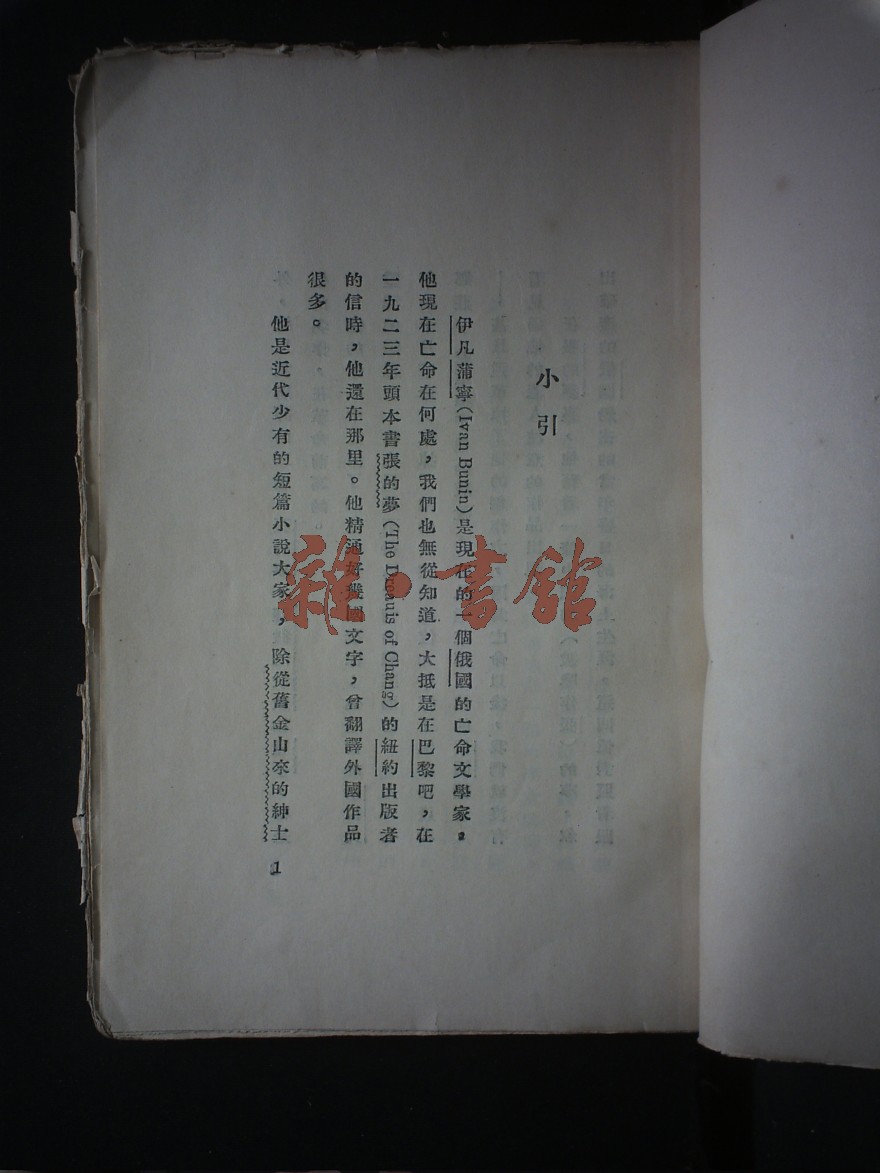 小引
伊凡蒲寧(Ivan Bunin)是現在的一個俄國的亡命文學家。
他現在亡命在何處，我們也無從知道，大抵是在巴黎吧，在
一九二三年頭本書張的夢(The Dreams of Chang)的紐約出版者
的信時，他還在那里。他精通好幾國文字，曾翻譯外國作品
很多。
他是近代少有的短篇小說大家，除從舊金山來的紳士
1
雜·書館